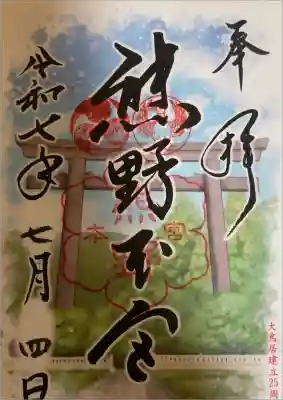 奉拝
熊野本宮
令和七年七月四日
本宮
大鳥居建立25周